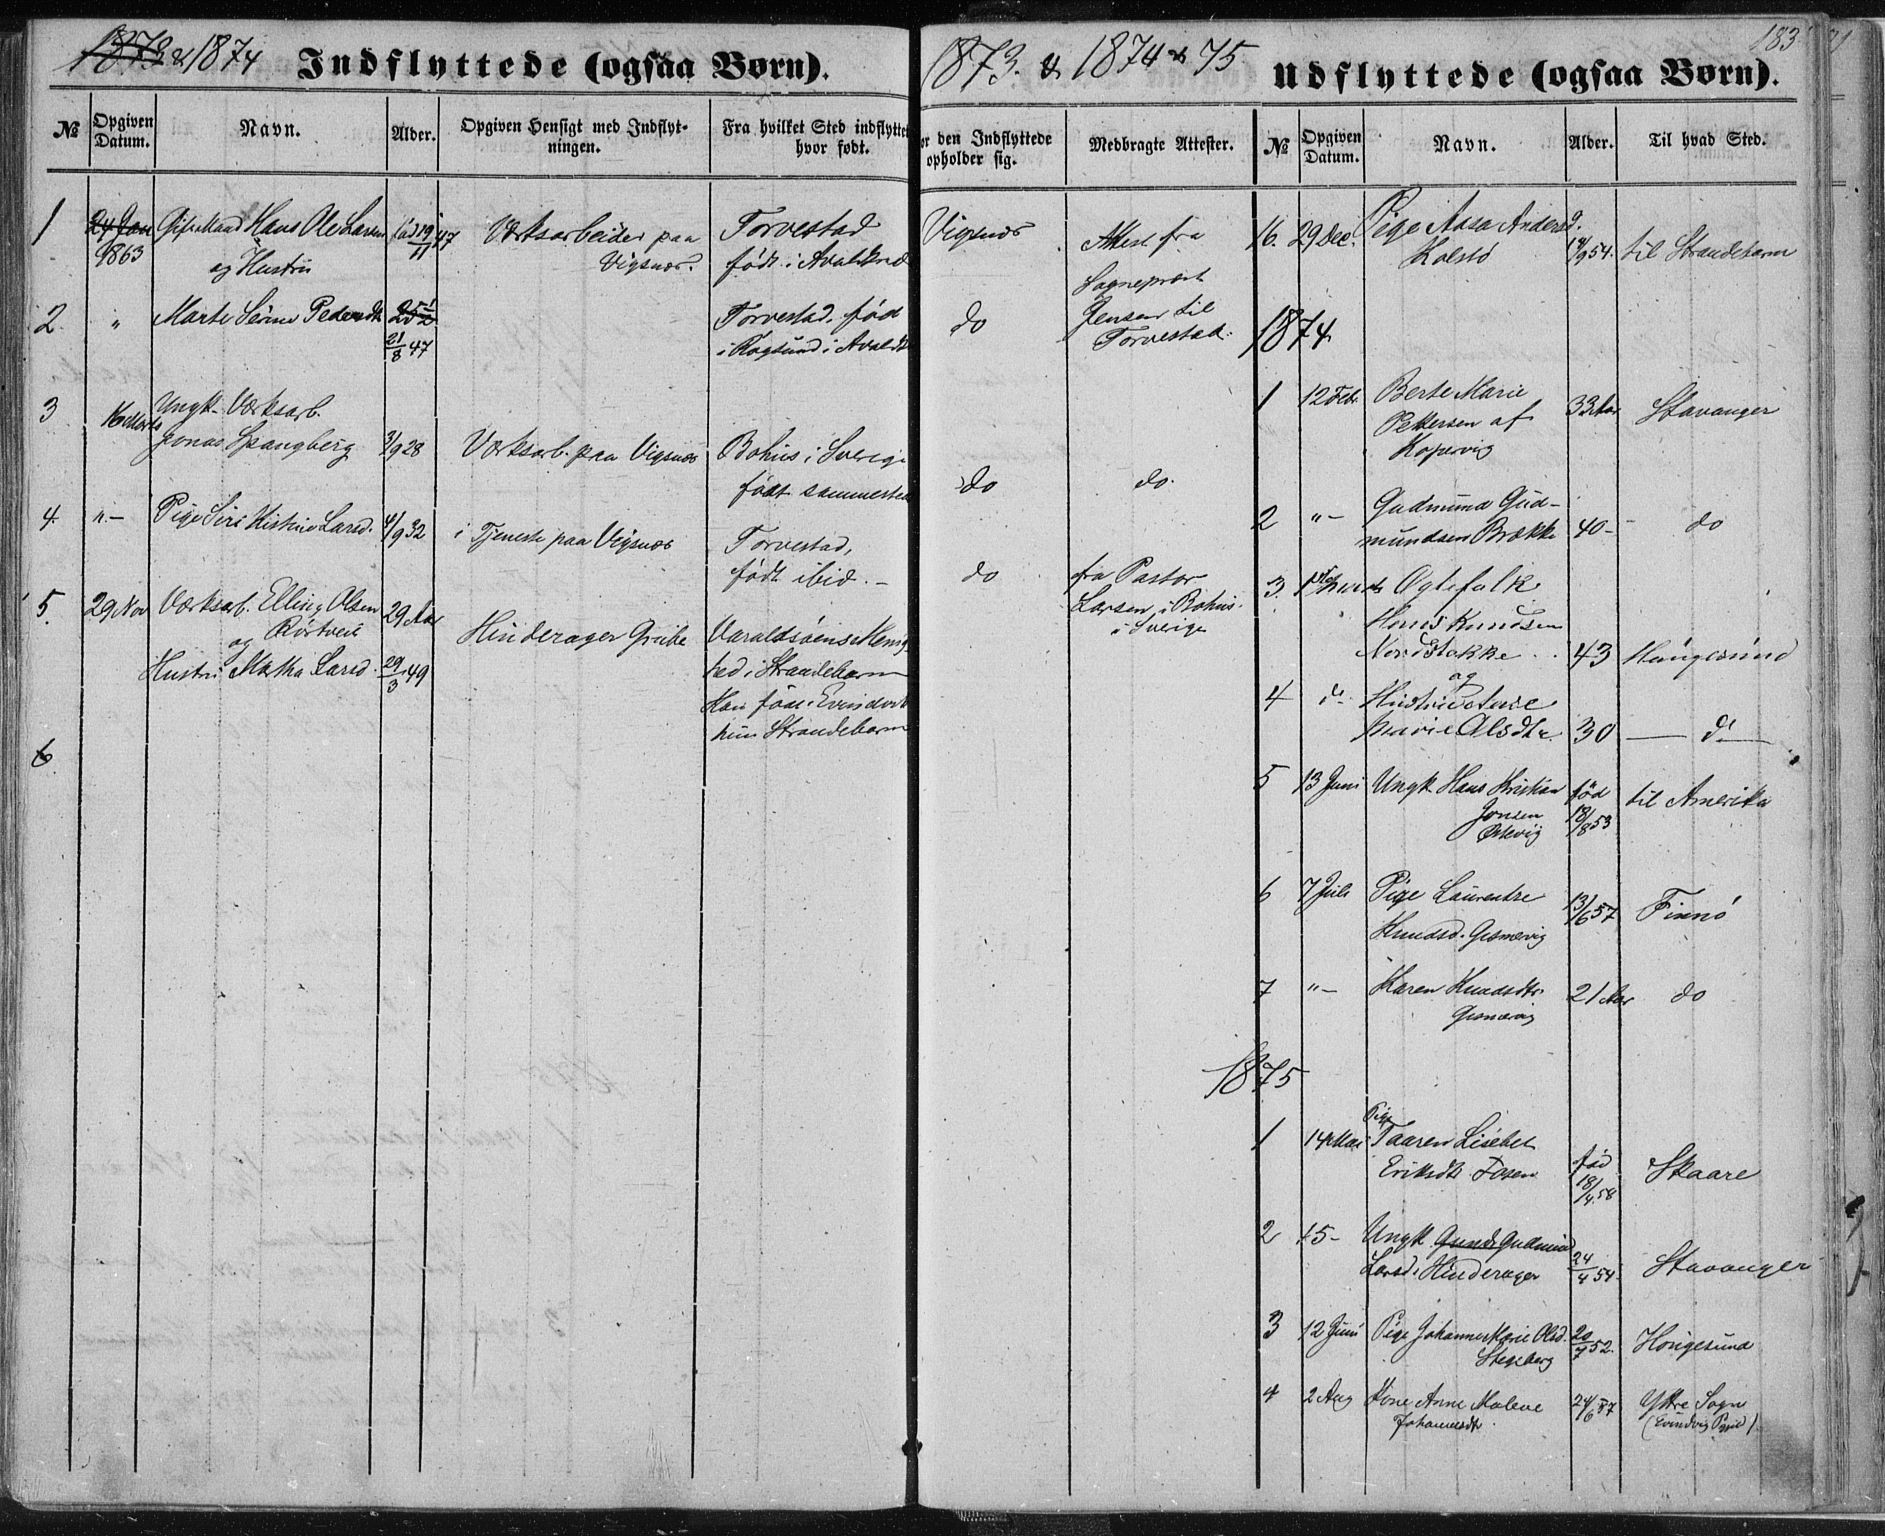 1873 & 1874
Indflyttede (ogsaa Børn).
№
Opgiven Datum.
Navn.
Alder.
Opgiven Hensigt med Indflyt-
ningen.
Fra hvilket Sted indflyttet
hvor født.
1
24 Jan
1863
Gift Mand Hans Ole Larsen
og Hustru
født 19/11 47
Værksarbeider paa
Vigsnæs.
Torvestad
født i
2.
"
Marte Serine Pedersdt
25½
21/8 47
Torvestad. fød
i Røgsund i Avaldsn
3
16 Marts
Ungk. Værksarb.
Jonas Spangberg
3/9 28
Værksarb. paa Vigsnæs
Bohus i Sverige
født sammested
4.
"–
Pige Siri Kistine Larsd.
4/9 32
i Tjeneste paa Vigsnæs
Torvestad,
født ibid. –
5.
29 Nov
Værksarb. Elling Olsen
Rörtveit
og
Hustru Martha Larsd.
29 Aar
29/3 49
Hinderager Grube
Varaldsöens Menig
hed i Strandebarm
Han føde i Evindvik
hun Strandebarm
6.
1873. & 1874 & 75
Udflyttede (ogsaa Børn).
183
or den Indflyttede
opholder sig.
Medbragte Attester.
№
Opgiven Datum.
Navn.
Alder.
Til hvad Sted.
Vigsnæs
Attest fra
Sogneprest
Jensen til
Torvestad.
do
do
do.
do
fra Pastor
Larsen i Bohus
i Sverige
16.
29 Dec.
Pige Aasa Andersd.
Kolstö
9/9 54.
til Strandebarm
1874
1
12 Febr.
Berte Marie
Pettersen af
Kopervig
33 Aar
Stavanger
2
"–
Gudmund Gud-
mundsen Brække
40 –
do
3.
Ogtefolk
Hans Knudsen
Nordstokke
43
Haugesund
og
4
do
Hustru
Marie Olsdtr.
30
– do –
5
13 Juni
Ungk. Hans Kristian
Jonsen
fød
18/8 53
til Amerika
6
7 Juli
Pige Laurentse
Knudsd. Gismervig
13/6 57
Finnö
7
"–
Karen Knudsdtr
Gismervig
21 Aar
do
1875
1
14 Mai
Pige
Taaren Lisebet
Eriksdtr Fosen
fød
18/4 58
Skaare
2
15 –
Ungk. Gudmund
Larsd. Hinderager
24/4 54.
Stavanger
3
12 Juni
Pige Johanne Marie Olsd.
Stegeberg
20/7 52.
Haugesund
4
2 Aug
Kone Anne Malene
Johannesdtr.
24/6 37
Yttre Sogn
(Evindvig Pgjeld)